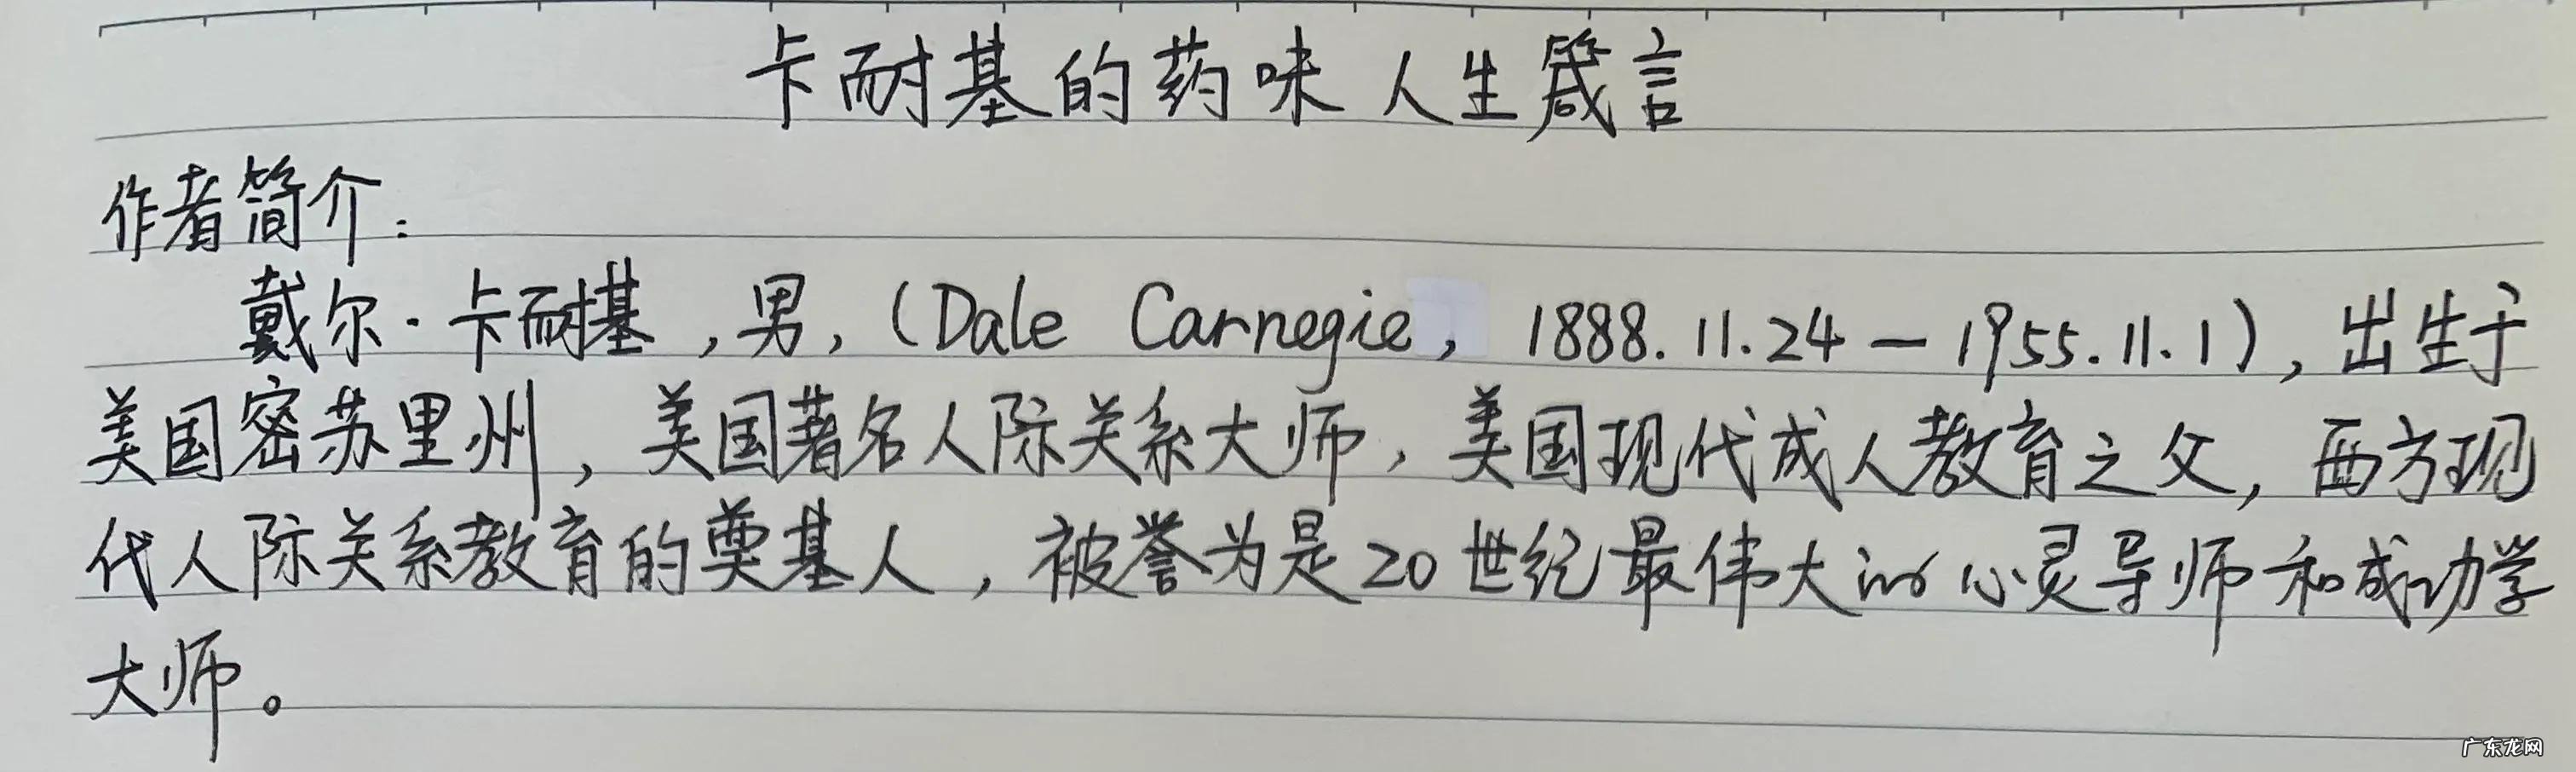 卡耐基的药味人生箴言
作者简介:
戴尔·卡耐基,男,(Dale Carnegie, 1888.11.24—1955.11.1),出生于
美国密苏里州,美国著名人际关系大师,美国现代成人教育之父,西方现
代人际关系教育的奠基人,被誉为是20世纪最伟大的心灵导师和成功学
大师。
广东龙网